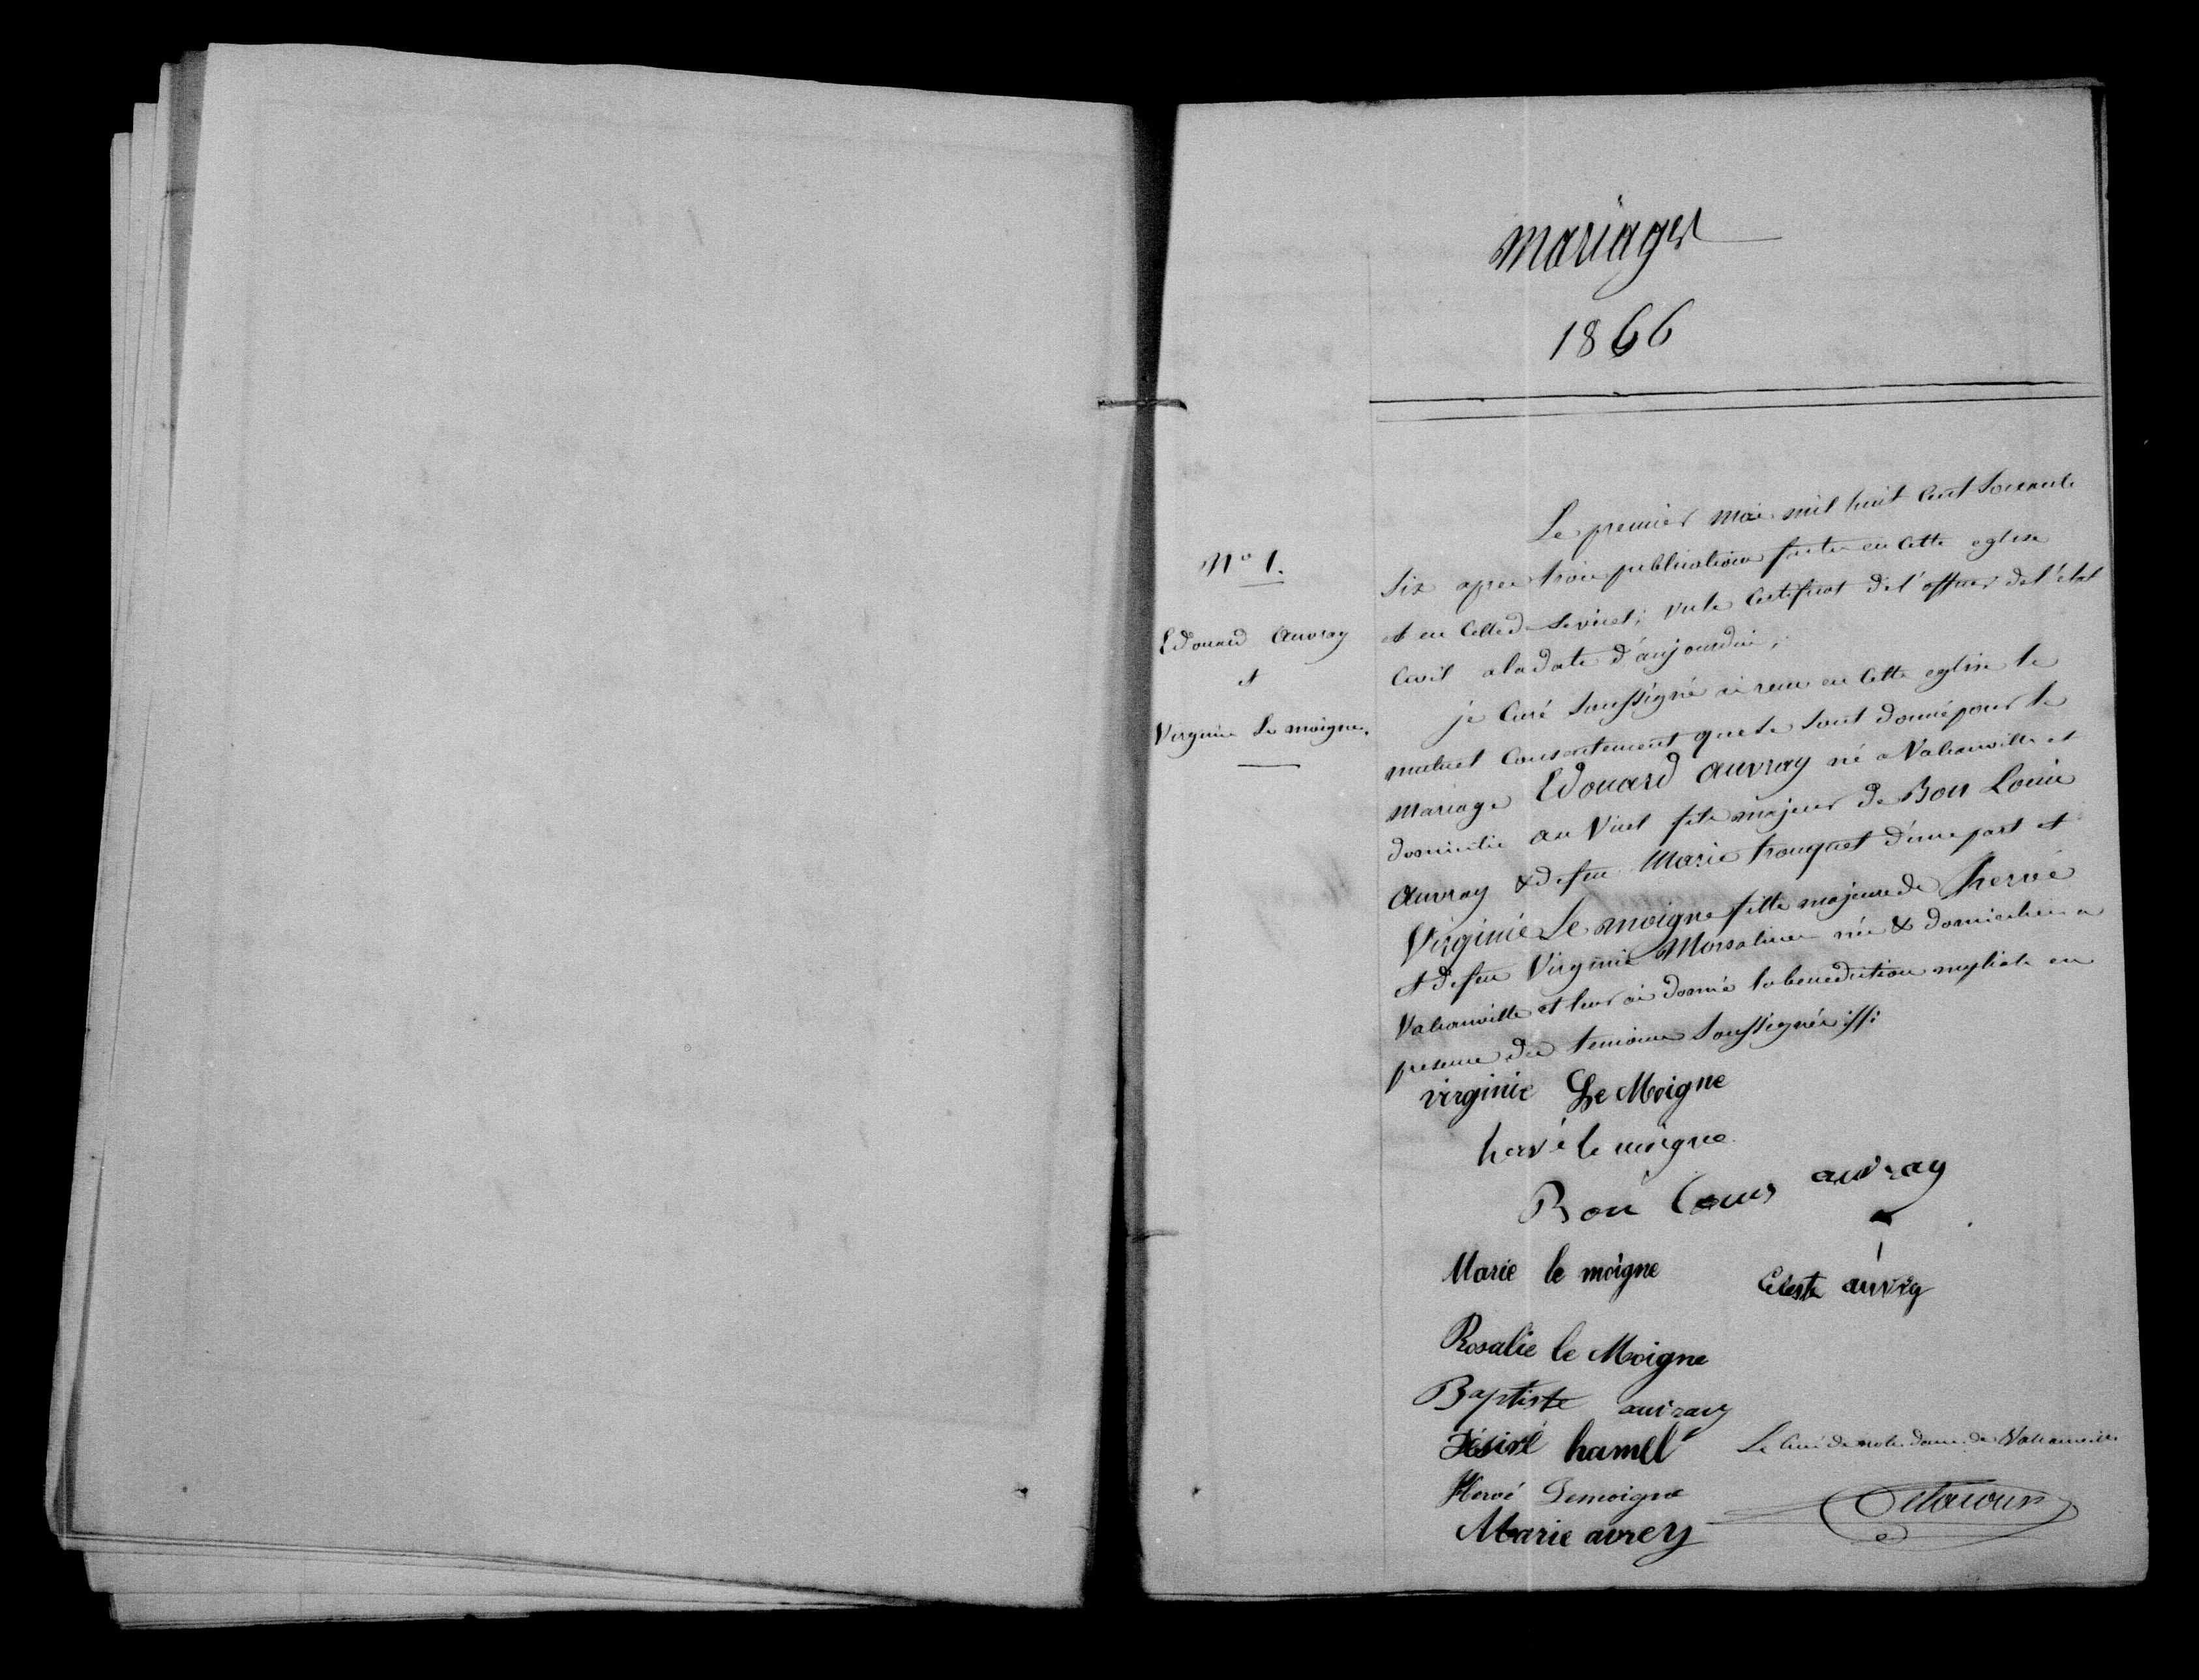 Mariages
1866
N° 1.
Edouard Auvray
et
Virginie Le moigne.
Le premier mai mil huit cent soixante
six après trois publications faites en cette eglise
et en celle de ; vu le certificat de l'officier de l'état
civil a la date d'aujourdui ;
je curé soussigné ai recu en cette eglise le
mutuel consentement que se sont donné pour le
mariage Edouard Auvray né a Valcanville et
domicilié au Vicel fils majeur de Bon Louis
Auvray & de feu Marie trouquet d'une part et
Virginie Le moigne fille majeure de hervé
et de feu Virginie née & domiciliée a
Valcanville et leur ai donné la benediction nuptiale en
presence des temoins soussignés :/:
virginie Le Moigne
hervé le moigne
Bon Louis auvray
Marie le moigne Celeste auvry
Rosalie le Moigne
Baptiste auvray
Désiré hamel
Le Curé de notre dame de Valcanville
Hervé Lemoigne
Marie avrey